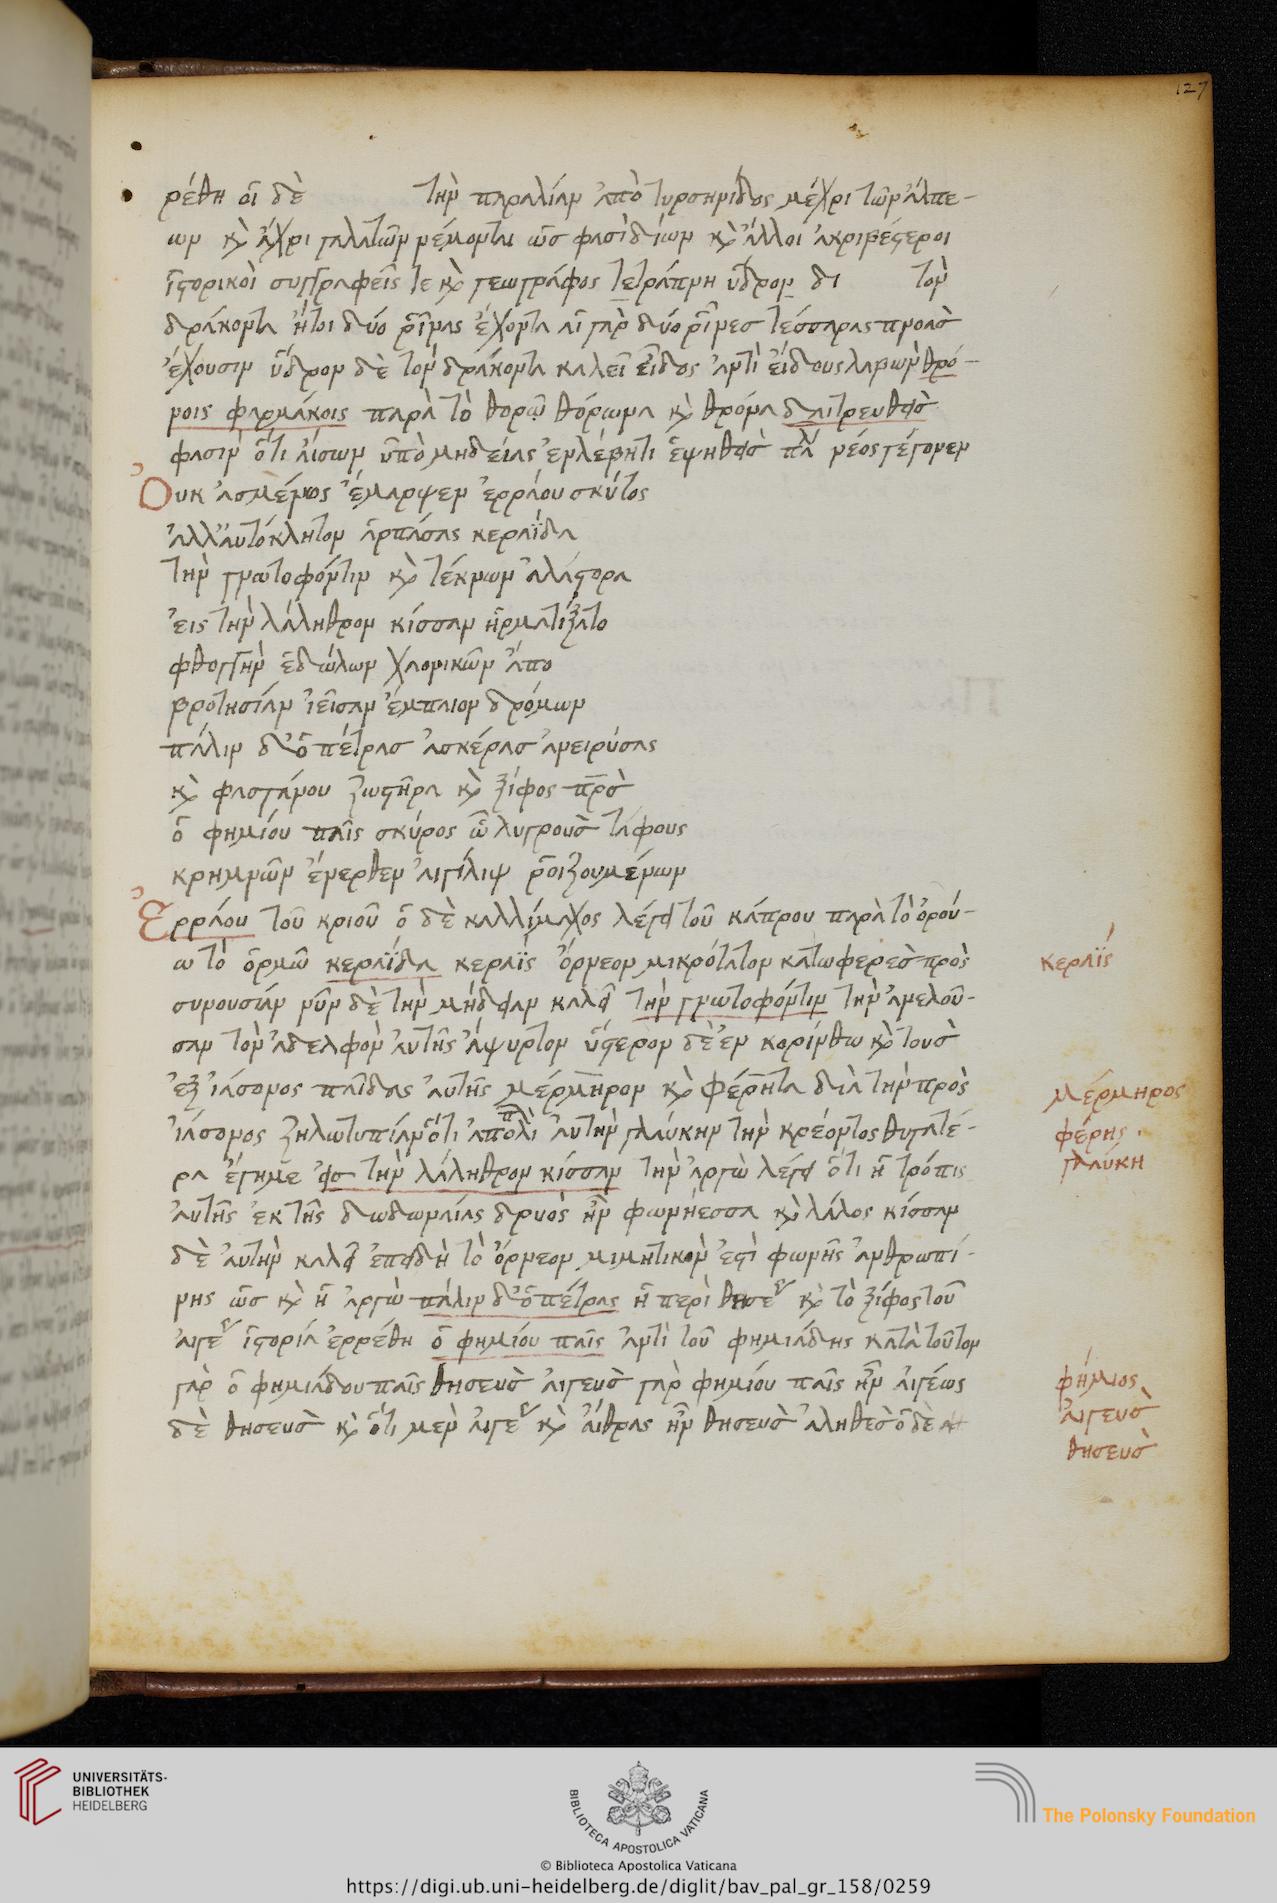 127
ρέθη οἱ δὲ τὴν παραλίαν ἀπὸ τυρσηνίδος μέχρι τῶν ἄλπε-
ων κ̀ ἄχρι γαλατῶν νέμονται ὥς φασὶ δίων κ̀ ἄλλοι ἀκριβέστεροι
ἱστορικοὶ συγγραφεῖς τε κ̀ γεωγράφος τετράπνη ὕδρον δι τὸν
δράκοντα ἤτοι δύο ῥῖνας ἔχοντα αἱ γὰρ δύο ῥῖνες τέσσαρας πνοὰς
ἔχουσιν ὕδρον δὲ τὸν δράκοντα καλεῖ εἶδος ἀντὶ εἴδους λαβὼν θρό-
νοις φαρμάκοις παρὰ τὸ θορῶ θόρωνα κ̀ θρόνα δαιτρευθεὶς
φασὶν ὅτι αἴσων ὑπὸ μηδείας ἐν λέβητι ἑψηθεὶς πά νέος γέγονεν
Οὐκ ἀσμένως ἔμαρψεν ἐρράου σκύτος
ἀλλ' αὐτόκλητον ἁρπάσας κεραΐδα
τὴν γνωτοφόντιν κ̀ τέκνων ἀλάστορα
εἰς τὴν λάληθρον κίσσαν ἡρματίξατο
φθογγὴν ἑδώλων χαονικῶν ἄπο
βροτησίαν ἱεῖσαν ἔμπαιον δρόμων
πάλιν δ' ὁ πέτρας ἀσκέρας ἀνειρύσας
κ̀ φασγάνου ζωστῆρα κ̀ ξίφος πρ̅ς̀
ὁ φημίου παῖς σκύρος ᾧ λυγροὺς τάφους
κρημνῶν ἔνερθεν αἰγίλιψ ῥοιζουμένων
Ἐρράου τοῦ κριοῦ ὁ δὲ καλλίμαχος λέγει τοῦ κάπρου παρὰ τὸ ὀρού-
ω τὸ ὁρμῶ κεραΐδα κεραῒς ὄρνεον μικρότατον κατωφερὲς πρὸς
συνουσίαν νῦν δὲ τὴν μήδειαν καλεῖ τὴν γνωτοφόντιν τὴν ἀνελοῦ-
σαν τὸν ἀδελφὸν αὐτῆς ἄψυρτον ὕστερον δὲ ἐν κορίνθω κ̀ τοὺς
ἐξ ἰάσονος παῖδας αὐτῆς μέρμηρον κ̀ φέρητα διὰ τὴν πρὸς
ἰάσονος ζηλωτυπίαν ὅτι ἀπολιπὼν αὐτὴν γλαύκην τὴν κρέοντος θυγατέ-
ρα ἔγημε εἰς τὴν λάληθρον κίσσαν τὴν ἀργὼ λέγει ὅτι ἡ τρόπις
αὐτῆς ἐκ τῆς δωδωναίας δρυὸς ἦν φωνήεσσα κ̀ λάλος κίσσαν
δὲ αὐτὴν καλεῖ ἐπειδὴ τὸ ὄρνεον μιμητικὸν ἐστὶ φωνῆς ἀνθρωπί-
νης ὡς κ̀ ἡ ἀργὼ πάλιν δ' ὁ πέτρας ἡ περὶ θησέ κ̀ τὸ ξίφος τοῦ
αἰγέ ἱστορία ἐρρέθη ὁ φημίου παῖς ἀντὶ τοῦ φημιάδης κατὰ τοῦτον
γὰρ ὁ φημιάδου παῖς θησεὺς αἰγεὺς γὰρ φημίου παῖς ἦν αἰγέως
δὲ θησεὺς κ̀ ὅτι μὲν αἰγέ κ̀ αἴθρας ἦν θησεὺς ἀληθὲς ὁ δὲ
κεραΐς
μέρμηρος
φέρης.
γλαύκη
φήμιος
αἰγεὺς
θησεὺς
UNIVERSITÄTS-
BIBLIOTHEK
HEIDELBERG
BIBLIOTECA APOSTOLICA VATICANA
The Polonsky Foundation
© Biblioteca Apostolica Vaticana
https://digi.ub.uni-heidelberg.de/diglit/bav_pal_gr_158/0259